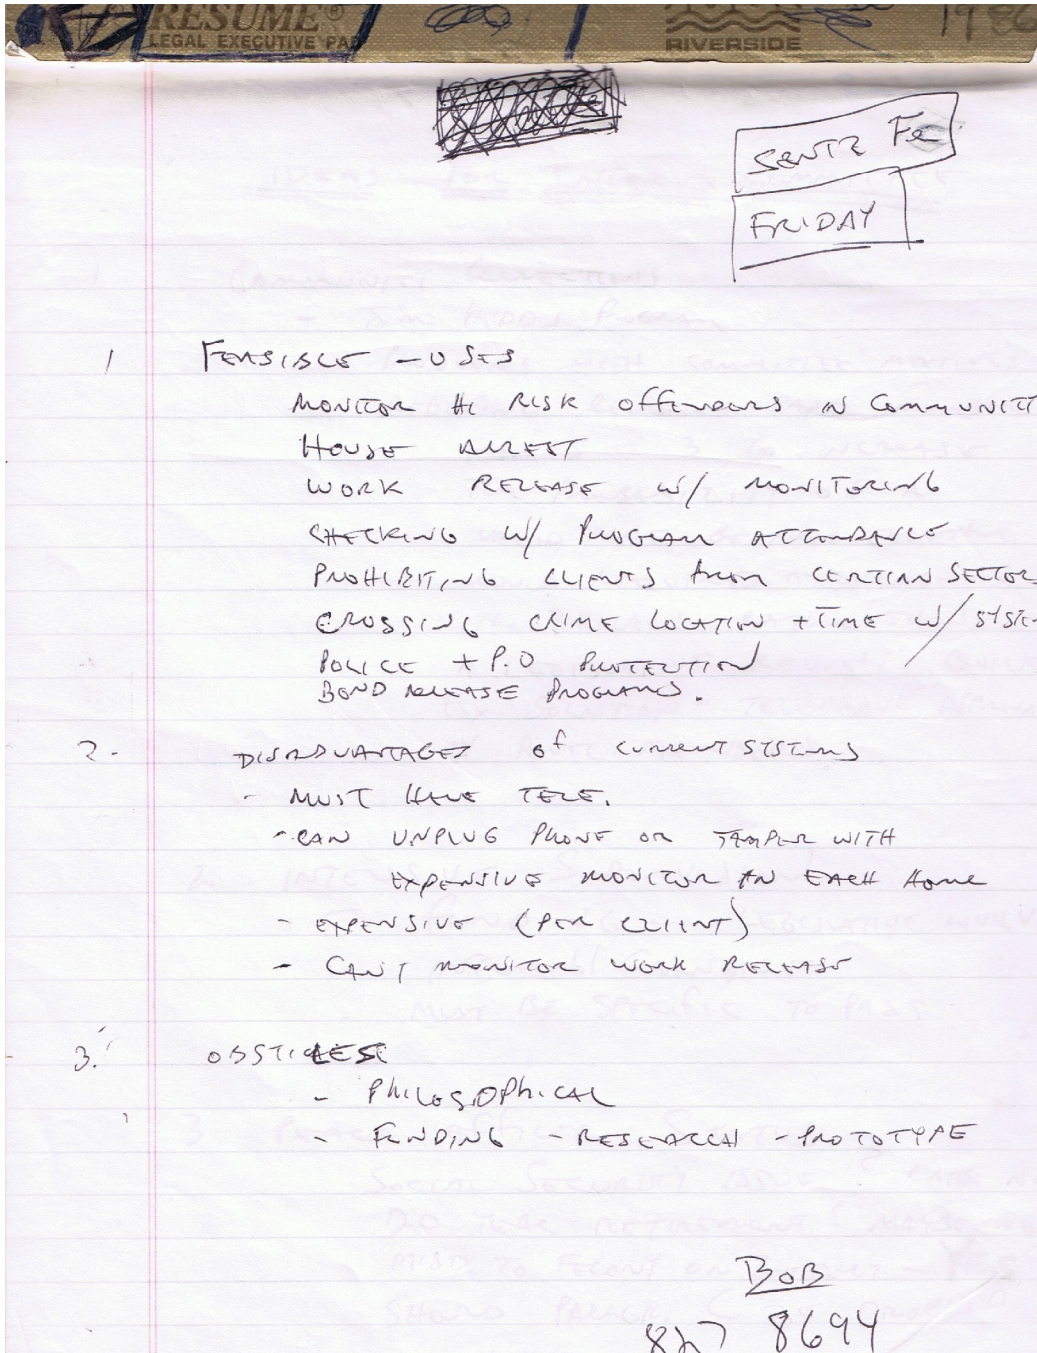 RESUME®
LEGAL EXECUTIVE PAD
RIVERSIDE
1986
SENTE Fe
FRIDAY
1 FEASIBLE - USES
MONITOR HI RISK OFFENDERS IN COMMUNITY
HOUSE ARREST
WORK RELEASE W/ MONITORING
CHECKING W/ PROGRAM ATTENDANCE
PROHIBITING CLIENTS FROM CERTIAN SECTORS
CROSSING CRIME LOCATION + TIME W/ SYSTE
POLICE + P.O PROTECTION
BOND RELEASE PROGRAMS.
2. DISADVANTAGES of CURRENT SYSTEMS
- MUST HAVE TELE.
- CAN UNPLUG PHONE OR TAMPER WITH
EXPENSIVE MONITOR IN EACH HOME
- EXPENSIVE (PER CLIENT)
- CAN'T MONITOR WORK RELEASE
3. OBSTICLES
- PHILOSOPHICAL
- FUNDING - RESEARCH - PROTOTYPE
BOB
827 8694